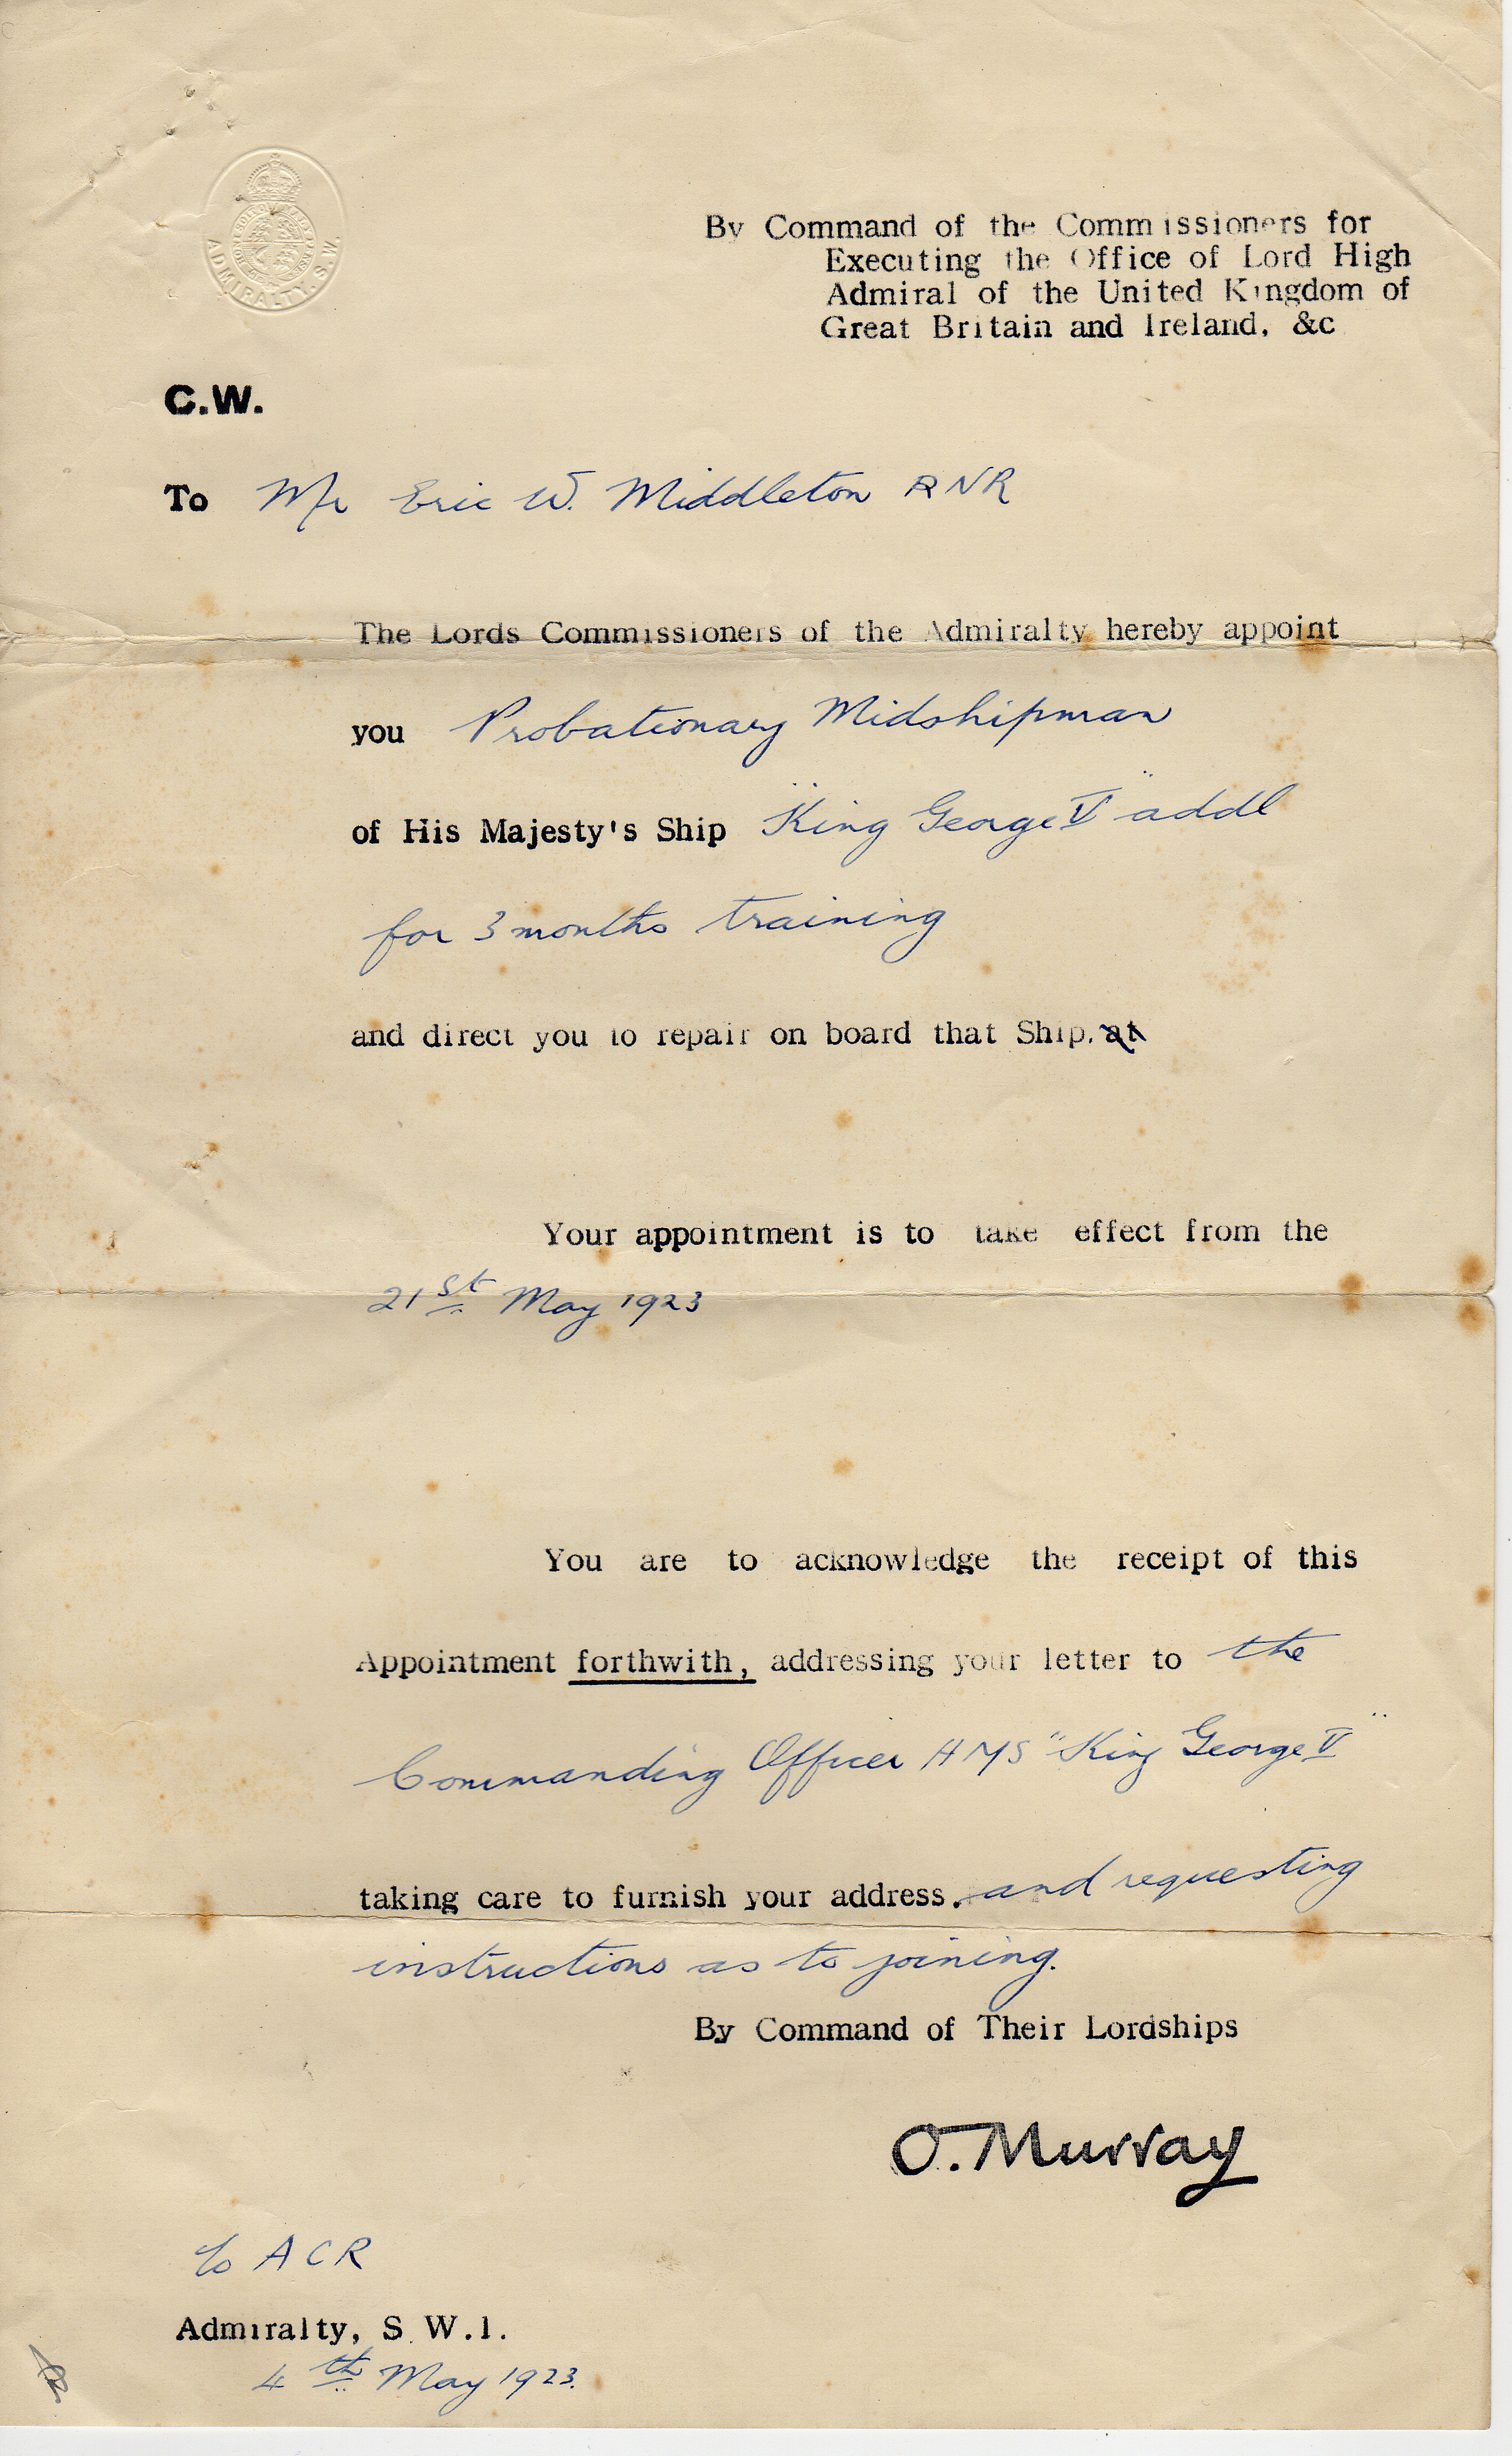 ADMIRALTY. S.W.
By Command of the Commissioners for
Executing the Office of Lord High
Admiral of the United Kingdom of
Great Britain and Ireland, &c
C.W.
To Mr Eric W. Middleton RNR
The Lords Commissioners of the Admiralty hereby appoint
you Probationary Midshipman
of His Majesty's Ship "King George V" addl
for 3 months training
and direct you to repair on board that Ship. at
Your appointment is to take effect from the
21st May 1923
You are to acknowledge the receipt of this
Appointment forthwith, addressing your letter to the
Commanding Officer HMS "King George V"
taking care to furnish your address. and requesting
instructions as to joining.
By Command of Their Lordships
O. Murray
ACR
Admiralty, S.W.1.
4th May 1923.